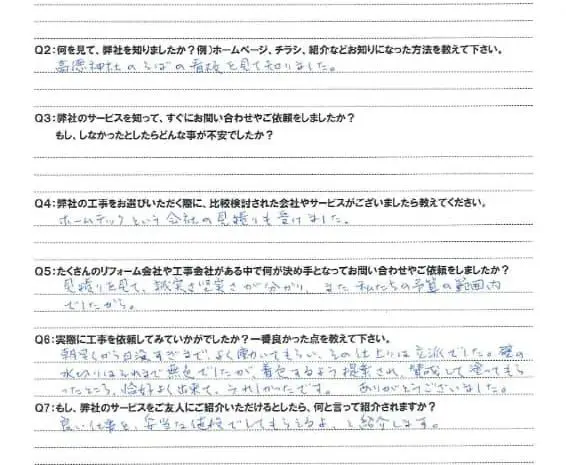 Q2:何を見て、弊社を知りましたか？例)ホームページ、チラシ、紹介などお知りになった方法を教えて下さい。
高徳神社のそばの看板を見て知りました。
Q3:弊社のサービスを知って、すぐにお問い合わせやご依頼をしましたか？
もし、しなかったとしたらどんな事が不安でしたか？
Q4:弊社の工事をお選びいただく際に、比較検討された会社やサービスがございましたら教えてください。
ホームテックという会社の見積りも受けました。
Q5:たくさんのリフォーム会社や工事会社がある中で何が決め手となってお問い合わせやご依頼をしましたか？
見積りを見て、誠実さ堅実さが分かり、また私たちの予算の範囲内
でしたから。
Q6:実際に工事を依頼してみていかがでしたか？一番良かった点を教えて下さい。
朝早くから日没すぎまでよく働いてもらい、その仕上りは立派でした。壁の
水切りはそれまで無色でしたが、着色するよう提案され、賛成して塗ってもら
ったところ、恰好よく出来て、うれしかったです。 ありがとうございました。
Q7:もし、弊社のサービスをご友人にご紹介いただけるとしたら、何と言って紹介されますか？
良い仕事を、妥当な値段でしてもらえるよ、と紹介します。